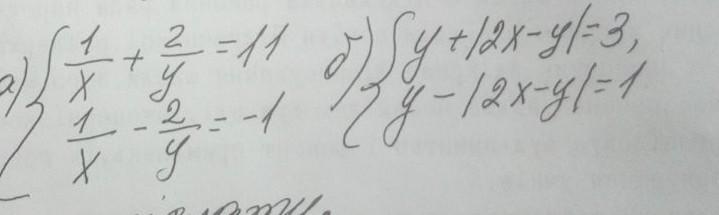 а) { 1/x + 2/y = 11
1/x - 2/y = -1
б) { y + |2x-y| = 3,
y - |2x-y| = 1